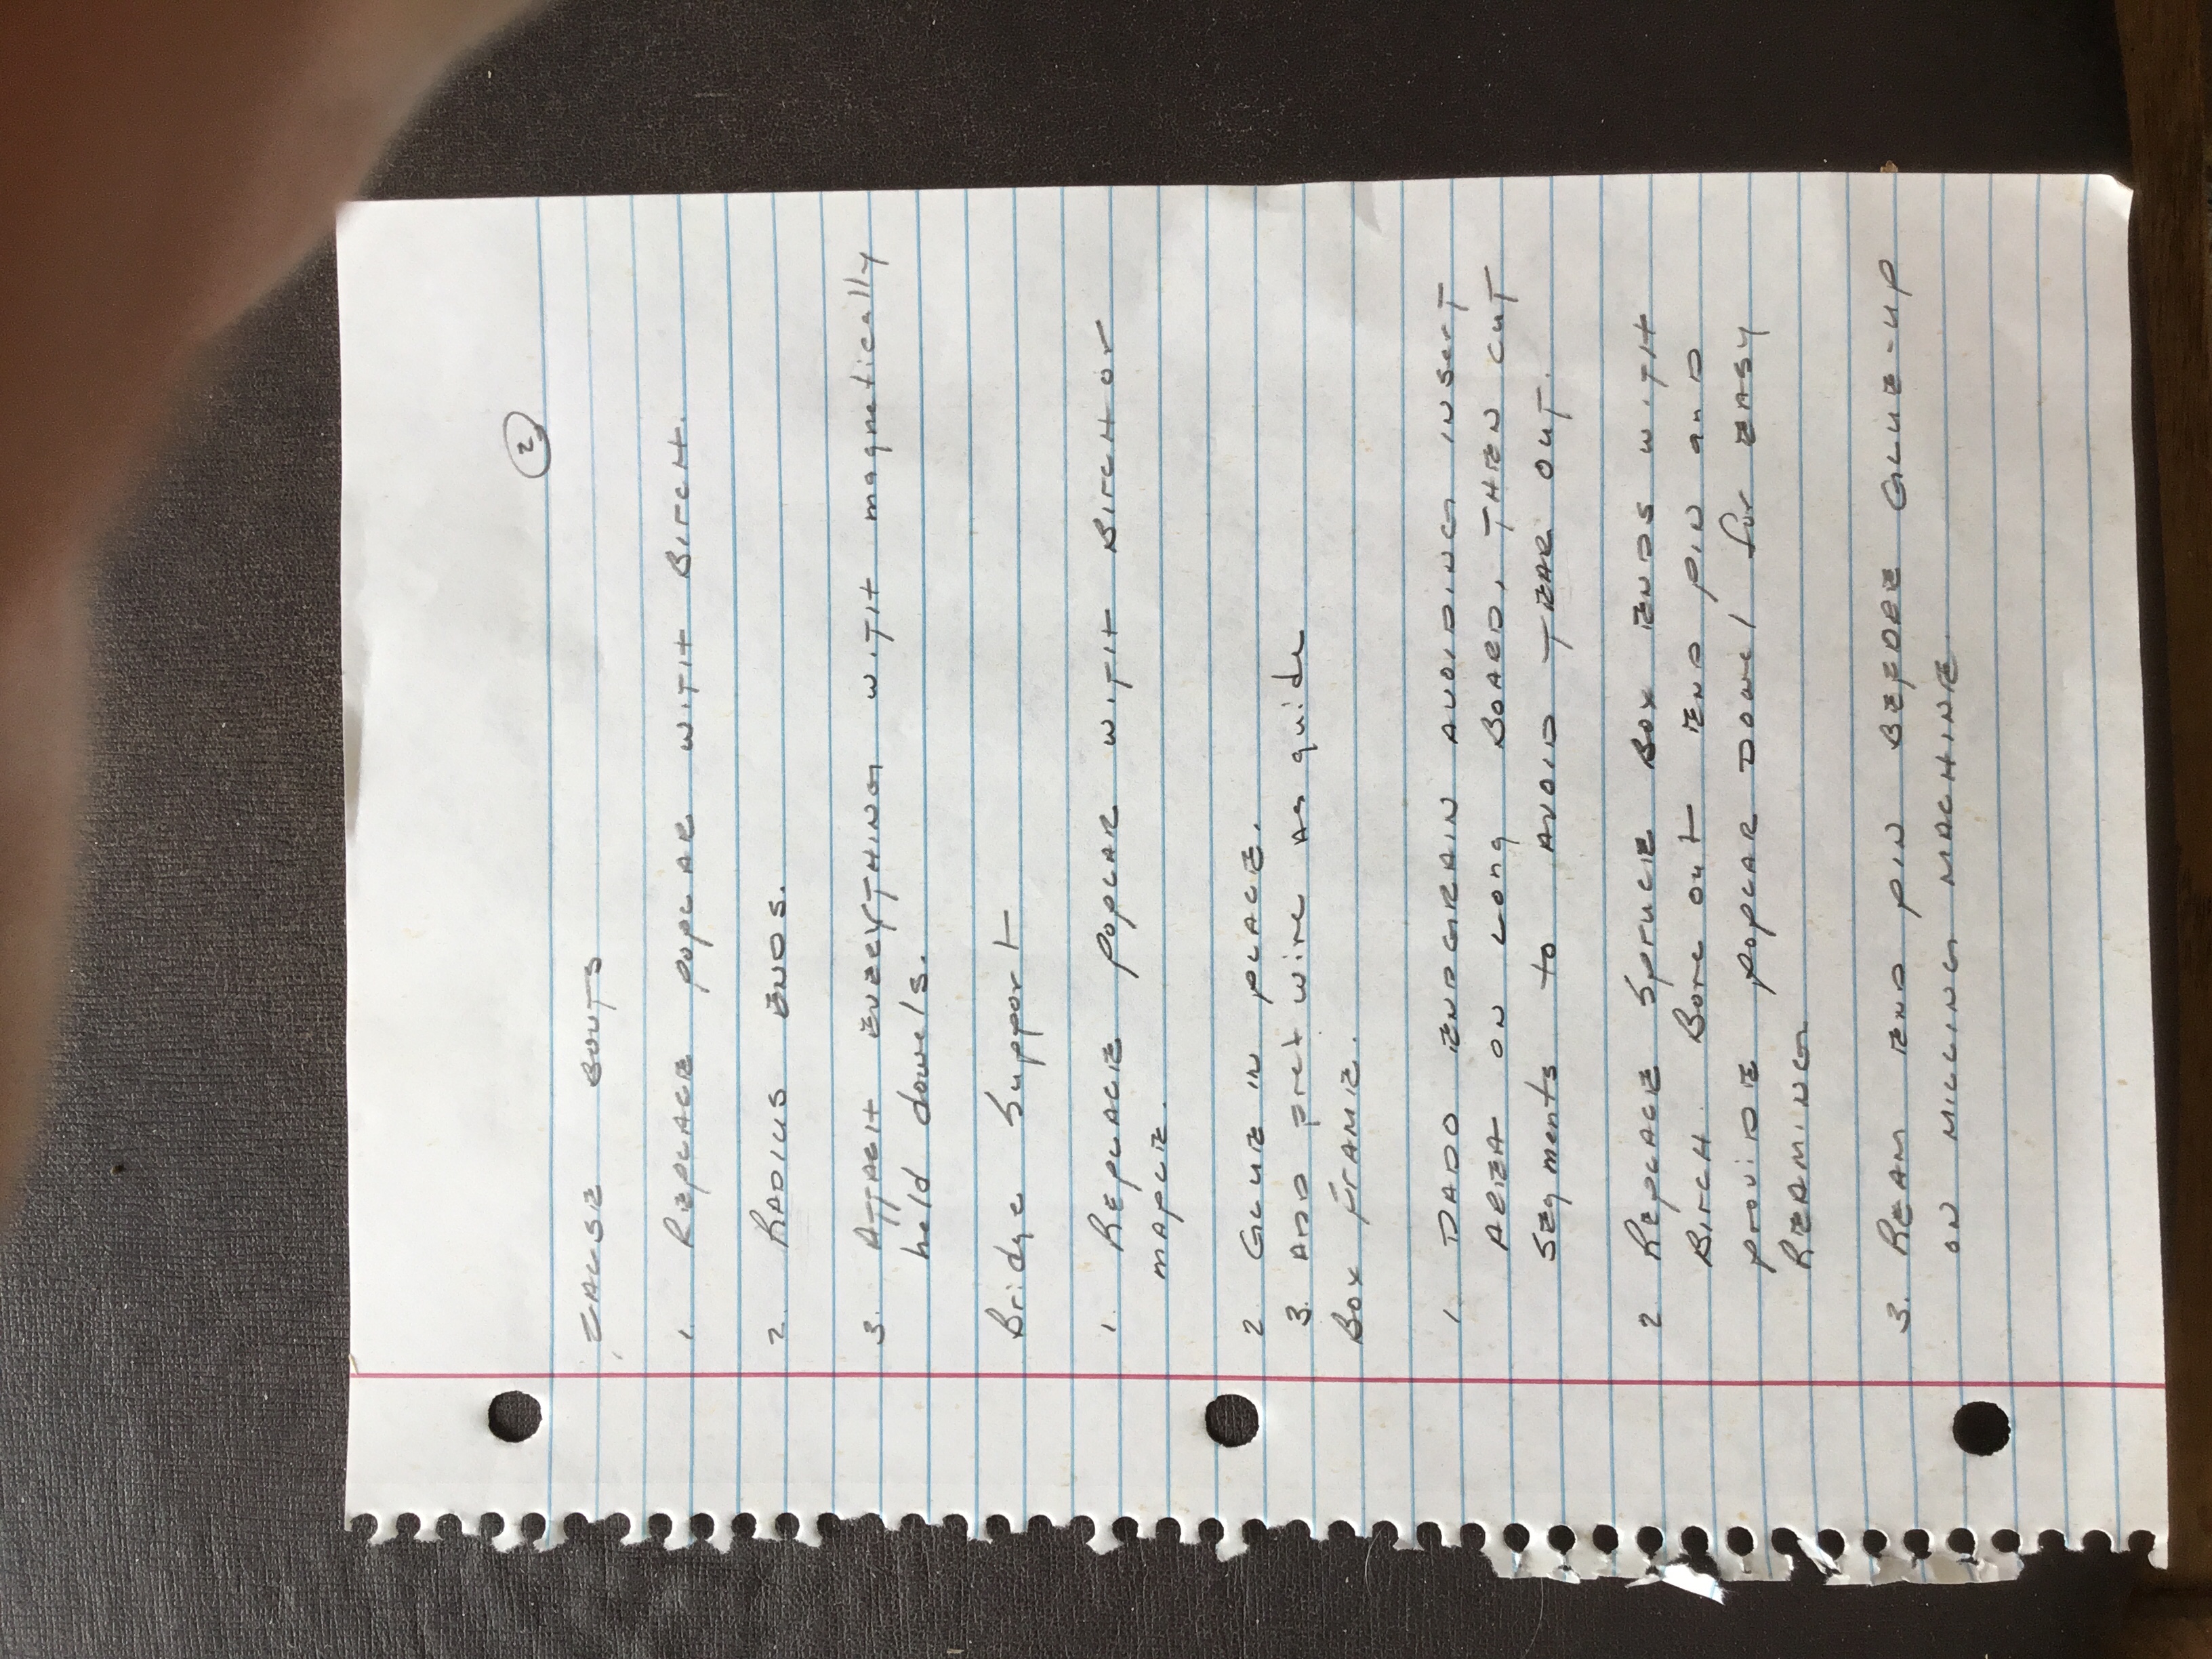 ②
FALSE BOUTS
1. REPLACE POPLAR WITH BIRCH.
2. RADIUS ENDS.
3. ATTACH EVERYTHING WITH magnetically
held dowels.
Bridge Support
1. REPLACE POPLAR WITH BIRCH or
MAPLE.
2. GLUE IN PLACE.
3. AND wire as guide
BOX FRAME.
1. DADO ENDGRAIN AVOIDING INSERT
AREA ON LONG BOARD, THEN CUT
SEgments to AVOID TEAR OUT.
2 REPLACE SPRUCE BOX ENDS WITH
BIRCH. Bore out END PIN AND
PROVIDE POPLAR DOWEL for EASY
REAMING
3. REAM END PIN BEFORE GLUE-UP
ON MILLING MACHINE.